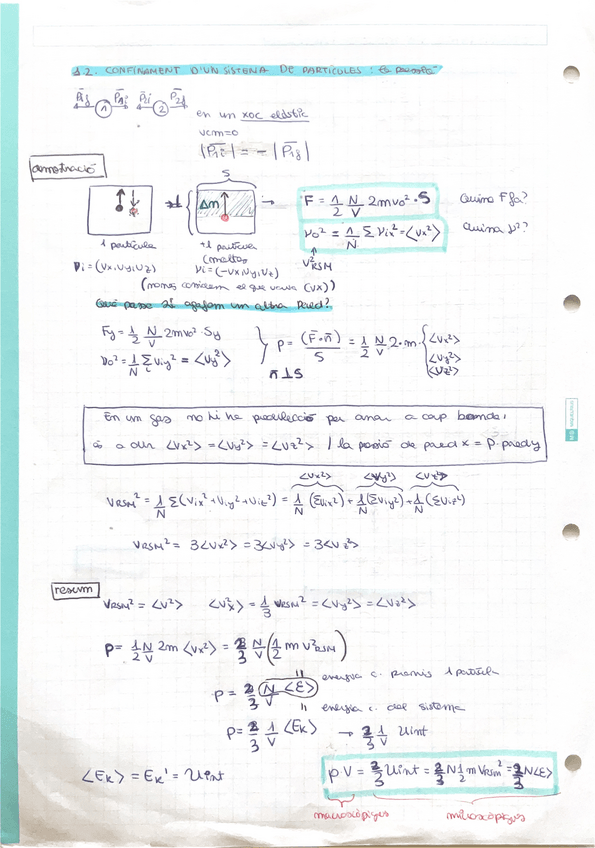 1.2. CONFINAMENT D'UN SISTEMA DE PARTÍCULES: la pressió
P̄1f P̄1i P̄2i P̄2f
1 2
en un xoc elàstic
vcm=0
|P̄1i| = - |P̄1f|
demostració
S
Δm
F = 1/2 N/V 2mv0² · S Quina F fa?
v0² = 1/N Σ vix² = <vx²> Quina v²?
v²RSM
1 partícula +1 partícula
(moltes
vi = (vx,vy,vz) vi = (-vx,vy,vz)
(només considerem el que varia (vx))
Què passa si agafem un altra Pared?
Fy = 1/2 N/V 2mv0² · Sy
v0² = 1/N Σ viy² = <vy²>
p = (F̄·n̄)/S = 1/2 N/V 2·m· { <vx²> <vy²> <vz²>
n̄ ⊥ S
En un gas no hi ha predilecció per anar a cap banda,
és a dir <vx²> = <vy²> = <vz²> / la pressió de pared x = P. pared y
<vx²> <vy²> <vz²>
VRSM² = 1/N Σ(vix² + viy² + viz²) = 1/N (Σvix²) + 1/N (Σviy²) + 1/N (Σviz²)
VRSM² = 3<vx²> = 3<vy²> = 3<vz²>
resum
VRSM² = <v²> <vx²> = 1/3 VRSM² = <vy²> = <vz²>
p = 1/2 N/V 2m <vx²> = 2/3 N/V (1/2 m v²RSM)
energia c. 1 partícula
p = 2/3 N/V <ε>
energia c. del sistema
p = 2/3 1/V <Ek> → 2/3 1/V Uint
<Ek> = Ek' = Uint
p·V = 2/3 Uint = 2/3 N 1/2 m VRSM² = 2/3 N<ε>
macroscòpiques microscòpiques